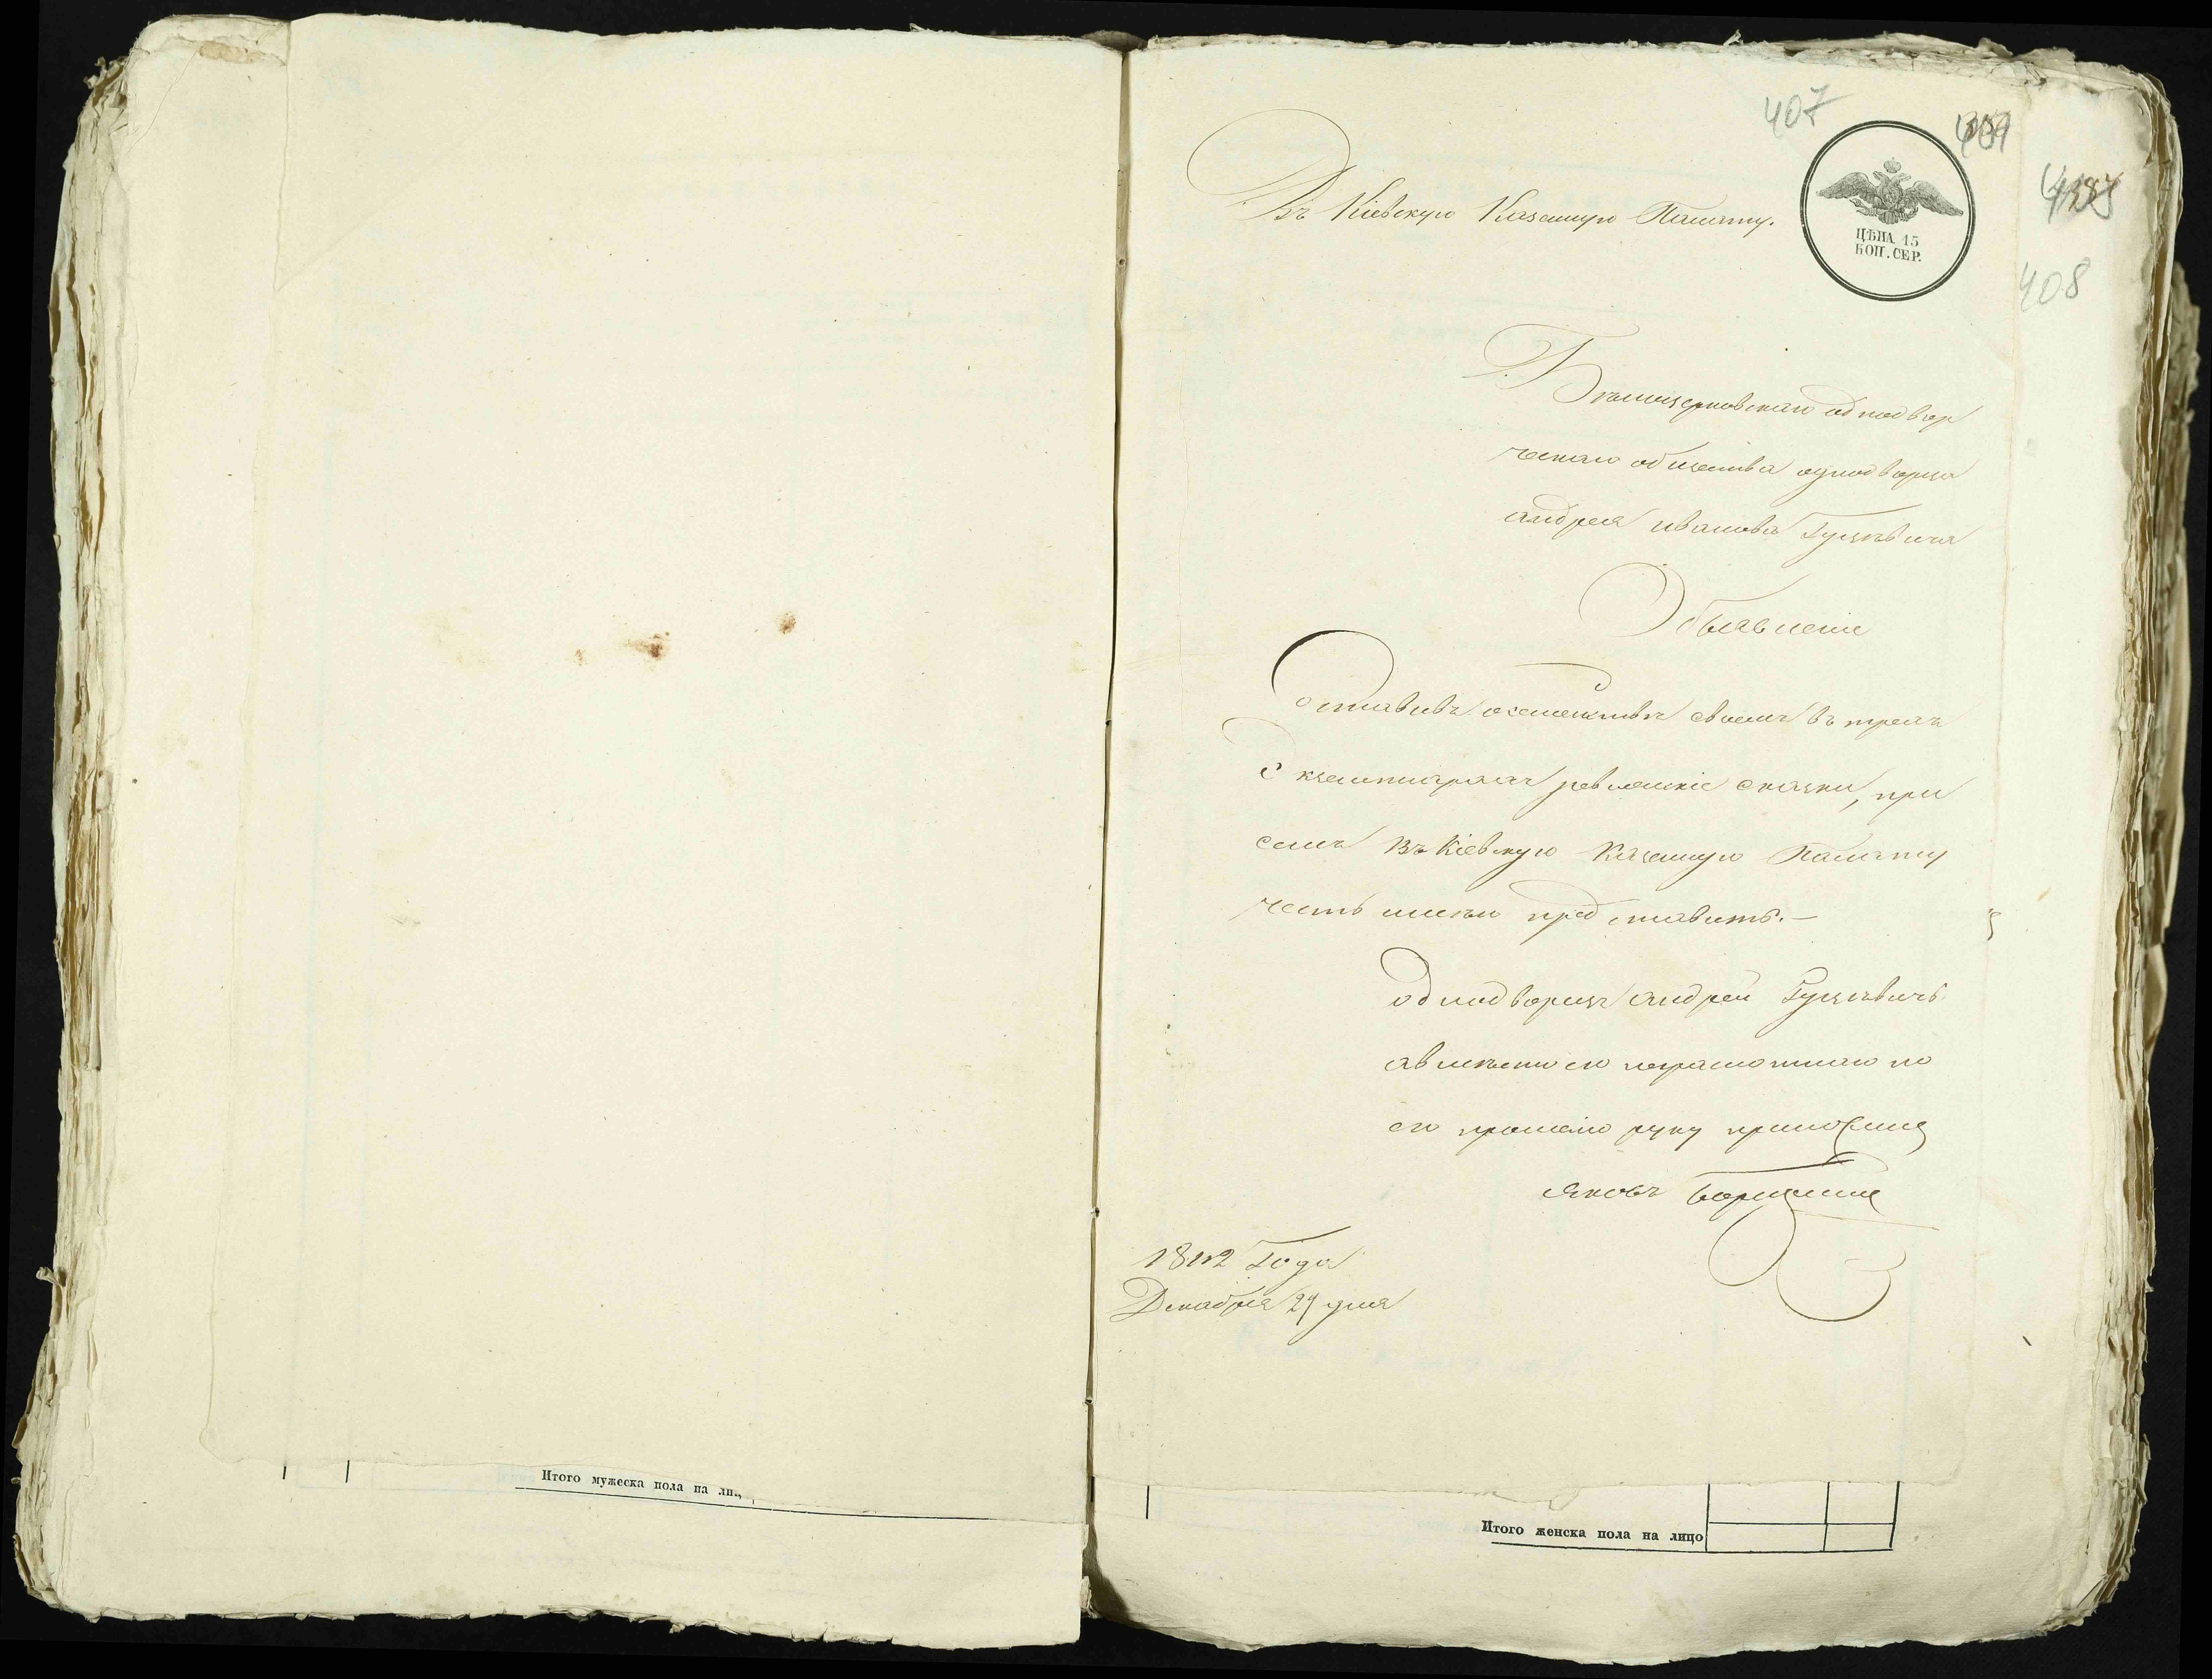 407
Въ Кіевскую Казенную Палату.
ЦѢНА 15
КОП. СЕР.
408
Бѣлоцерковскаго однодвор
ческаго общества однодворца
андрея иванова Гуцевича
Объявленіе
Составивъ о семействѣ своемъ въ трехъ
Экземплярахъ ревизскіе сказки, при
семъ въ Кіевскую Казенную Палату
честь имѣю представить.—
однодворецъ андрей Гуцевичъ
а вмѣсто его неграмотнаго по
его прошенію руку приложилъ
Яковъ
Года
Декабря 29 дня
Итого мужеска пола на ли
Итого женска пола на лицо